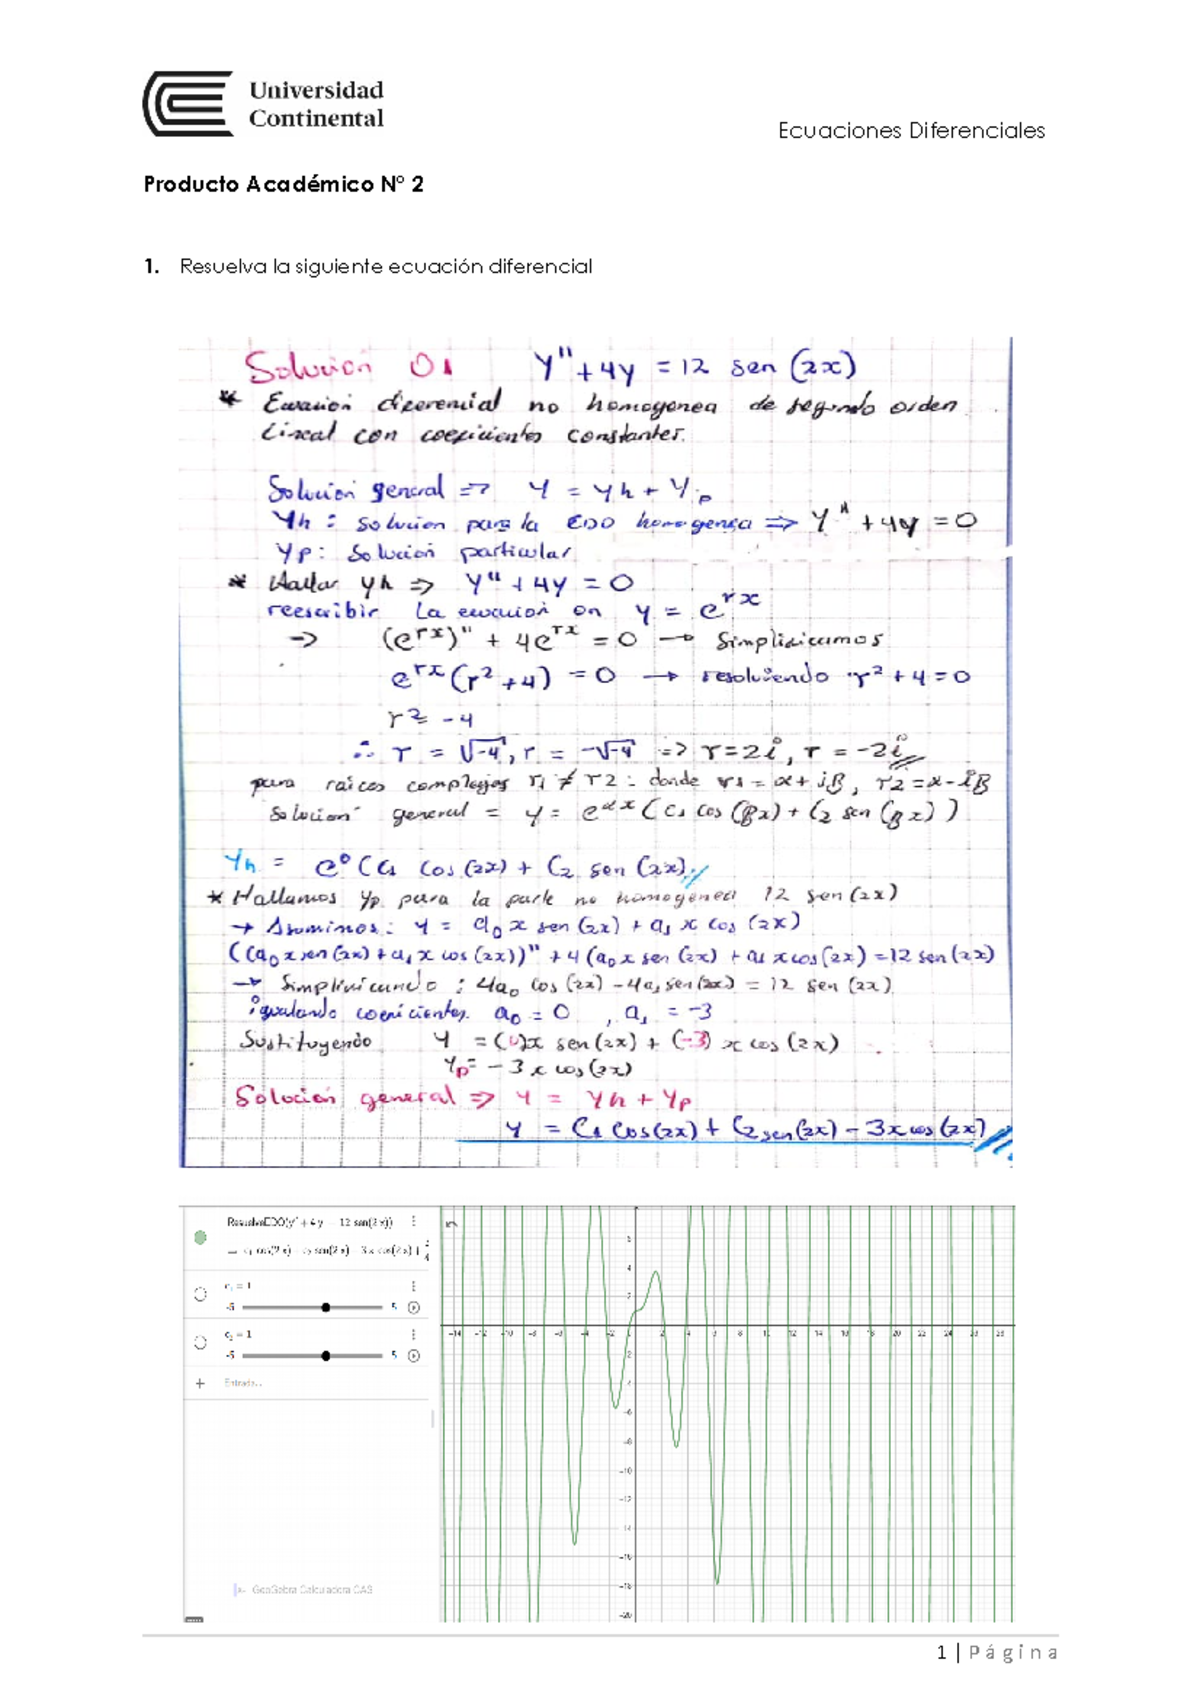 Universidad
Continental
Ecuaciones Diferenciales
Producto Académico N° 2
1. Resuelva la siguiente ecuación diferencial
Solución 01 y" + 4y = 12 sen (2x)
* Ecuación diferencial no homogenea de segundo orden
Lineal con coeficientes constantes.
Solución general => y = yh + yp
yh : solucion para la EDO homogenea => y" + 4y = 0
yp: Solución particular
* Hallar yh => y" + 4y = 0
reescribir La ecuación con y = e^rx
-> (e^rx)" + 4e^rx = 0 -> Simplificamos
e^rx (r² + 4) = 0 -> resolviendo r² + 4 = 0
r² = -4
∴ r = √-4, r = -√-4 => r=2i, r = -2i
para raices complejas r1 ≠ r2 : donde r1 = α + iβ, r2 = α - iβ
Solucion general = y = e^αx (C1 cos (βx) + C2 sen (βx))
yh = e⁰ (C1 cos (2x) + C2 sen (2x))
* Hallamos yp para la parte no homogenea 12 sen (2x)
-> Asumimos: y = a0 x sen (2x) + a1 x cos (2x)
((a0 x sen (2x) + a1 x cos (2x))" + 4 (a0 x sen (2x) + a1 x cos (2x) = 12 sen (2x)
-> Simplificando : 4a0 cos (2x) - 4a1 sen (2x) = 12 sen (2x)
igualando coeficientes. a0 = 0 , a1 = -3
Sustituyendo y = (0)x sen (2x) + (-3) x cos (2x)
yp = - 3 x cos (2x)
Solución general => y = yh + yp
y = C1 cos(2x) + C2 sen (2x) - 3x cos (2x)
ResuelveEDO(y" + 4 y = 12 sen(2 x))
c₁ = 1
-5 5
c₂ = 1
-5 5
+ Entrada...
GeoGebra Calculadora CAS
-14 -12 -10 -8 -6 -4 -2 2 4 6 8 10 12 14 16 18 20 22 24 26 28
6
4
2
-2
-4
-6
-8
-10
-12
-14
-16
-18
-20
1 | Página